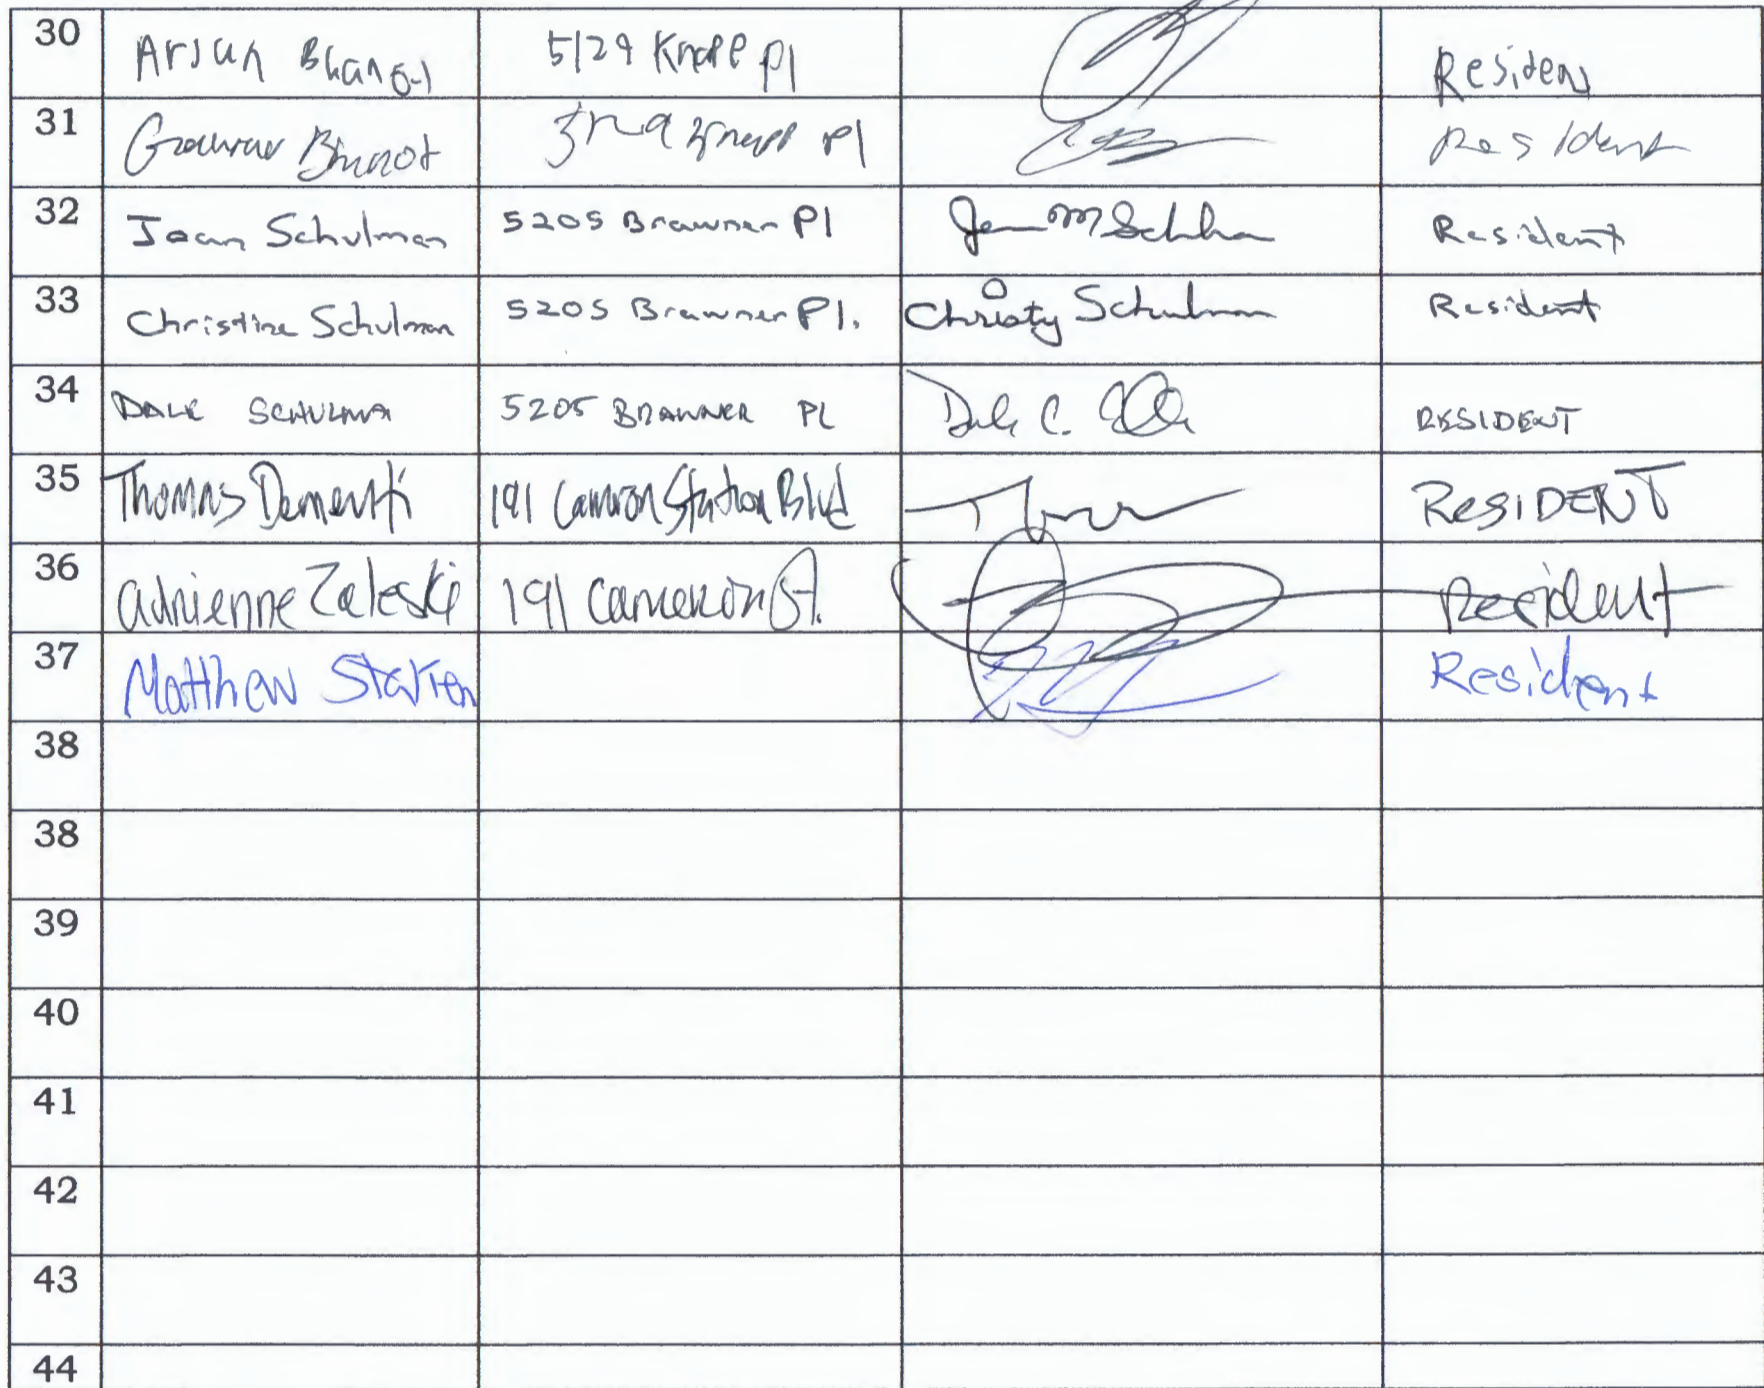 30 Arjun 5129 Knapp Pl Residen
31 Pl Resident
32 Joan Schulman 5205 Brawner Pl Resident
33 Christine Schulman 5205 Brawner Pl. Christy Schulman Resident
34 DALE SCHULMA 5205 BRAWNER PL Dale C. RESIDENT
35 Thomas 191 Camron Station Blvd RESIDENT
36 Adrienne Zaleski 191 Cameron St. Resident
37 Matthew Resident
38
38
39
40
41
42
43
44